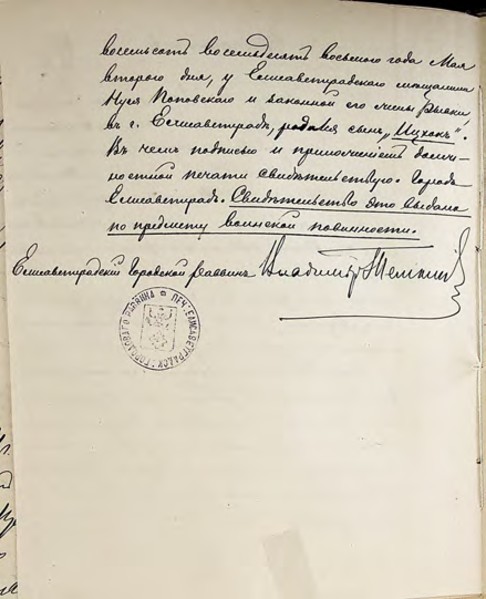 восемьсотъ восемьдесятъ восьмого года Мая
второго дня, у Елисаветградскаго мѣщанина
Нуся Поповскаго и законной его жены Рывки,
въ г. Елисаветградѣ, родился сынъ „Ицхокъ".
Въ чемъ подписью и приложеніемъ долж-
ностной печати свидѣтельствую. Городъ
Елисаветградъ. Свидѣтельство это выдано
по предмету воинской повинности.
Елисаветградскій Городской Раввинъ Владиміръ Темкинъ
ПЕЧ. ЕЛИСАВЕТГРАДСК. ГОРОДОВАГО РАВВИНА